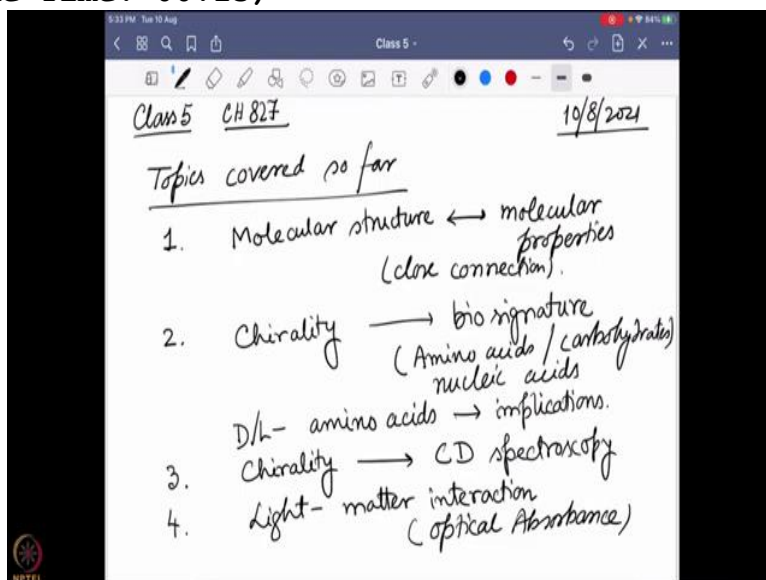 5:33 PM Tue 10 Aug
84%
Class 5
Class 5 CH 827 10/8/2021
Topics covered so far
1. Molecular structure ↔ molecular
properties
(close connection).
2. Chirality → biosignature
(Amino acids / carbohydrates)
nucleic acids
D/L- amino acids → implications.
3. Chirality → CD spectroscopy
4. Light- matter interaction
(optical Absorbance)
NPTEL